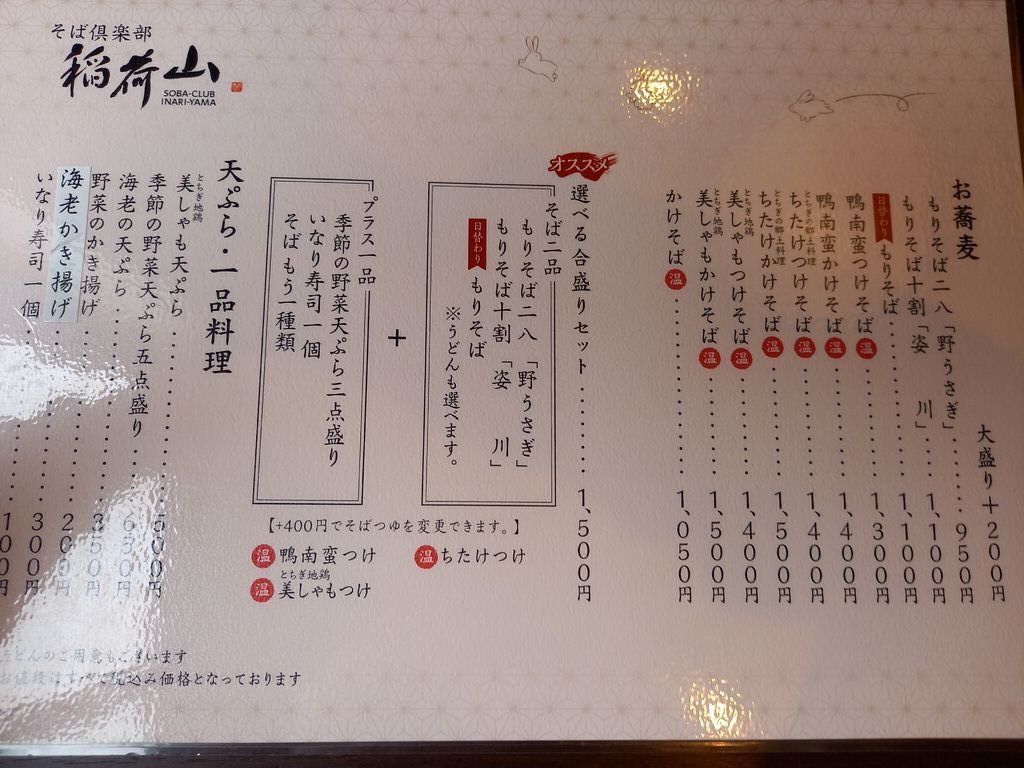 そば倶楽部
稲荷山
SOBA-CLUB
INARI-YAMA
お蕎麦
大盛り+200円
もりそば二八「野うさぎ」 950円
もりそば十割「姿川」 1,100円
日替わり もりそば 1,100円
鴨南蛮つけそば 温 1,300円
鴨南蛮かけそば 温 1,400円
とちぎの郷土料理
ちたけつけそば 温 1,400円
とちぎの郷土料理
ちたけかけそば 温 1,500円
とちぎ地鶏
美しゃもつけそば 温 1,400円
とちぎ地鶏
美しゃもかけそば 温 1,500円
かけそば 温 1,050円
オススメ
選べる合盛りセット 1,500円
そば二品
もりそば二八「野うさぎ」
もりそば十割「姿川」
日替わり もりそば
※うどんも選べます。
+
プラス一品
季節の野菜天ぷら三点盛り
いなり寿司一個
そばもう一種類
【+400円でそばつゆを変更できます。】
温 鴨南蛮つけ
温 ちたけつけ
とちぎ地鶏
温 美しゃもつけ
天ぷら・一品料理
とちぎ地鶏
美しゃも天ぷら 500円
季節の野菜天ぷら五点盛り 650円
海老の天ぷら 350円
野菜のかき揚げ 200円
海老かき揚げ 300円
いなり寿司一個 100円
うどんのご用意もございます
お値段はすべて税込み価格となっております